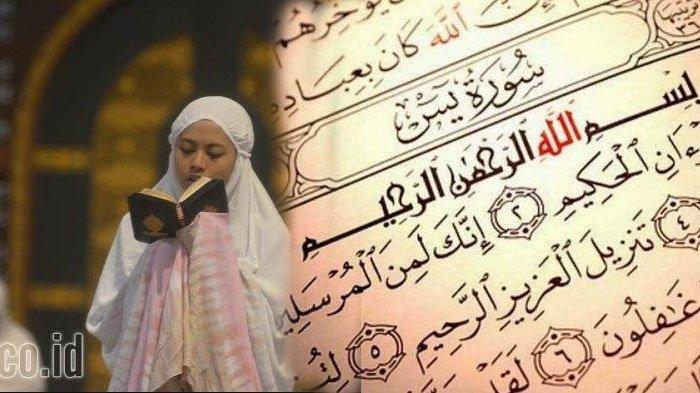 يُؤَخِّرُهُمْ
إِنَّ اللَّهَ كَانَ بِعِبَادِهِ
سُورَةُ يسٓ
بِسْمِ اللَّهِ الرَّحْمَٰنِ الرَّحِيمِ
ءَانِ الْحَكِيمِ ٢ إِنَّكَ لَمِنَ الْمُرْسَلِي
٤ تَنزِيلَ الْعَزِيزِ الرَّحِيمِ ٥ لِتُ
غَٰفِلُونَ ٦ لَقَدْ
co.id